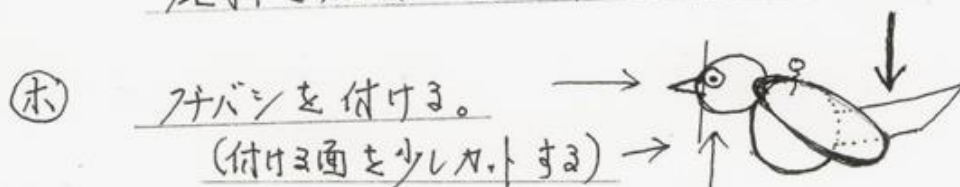 ホ クチバシを付ける。
(付ける面を少しカットする)